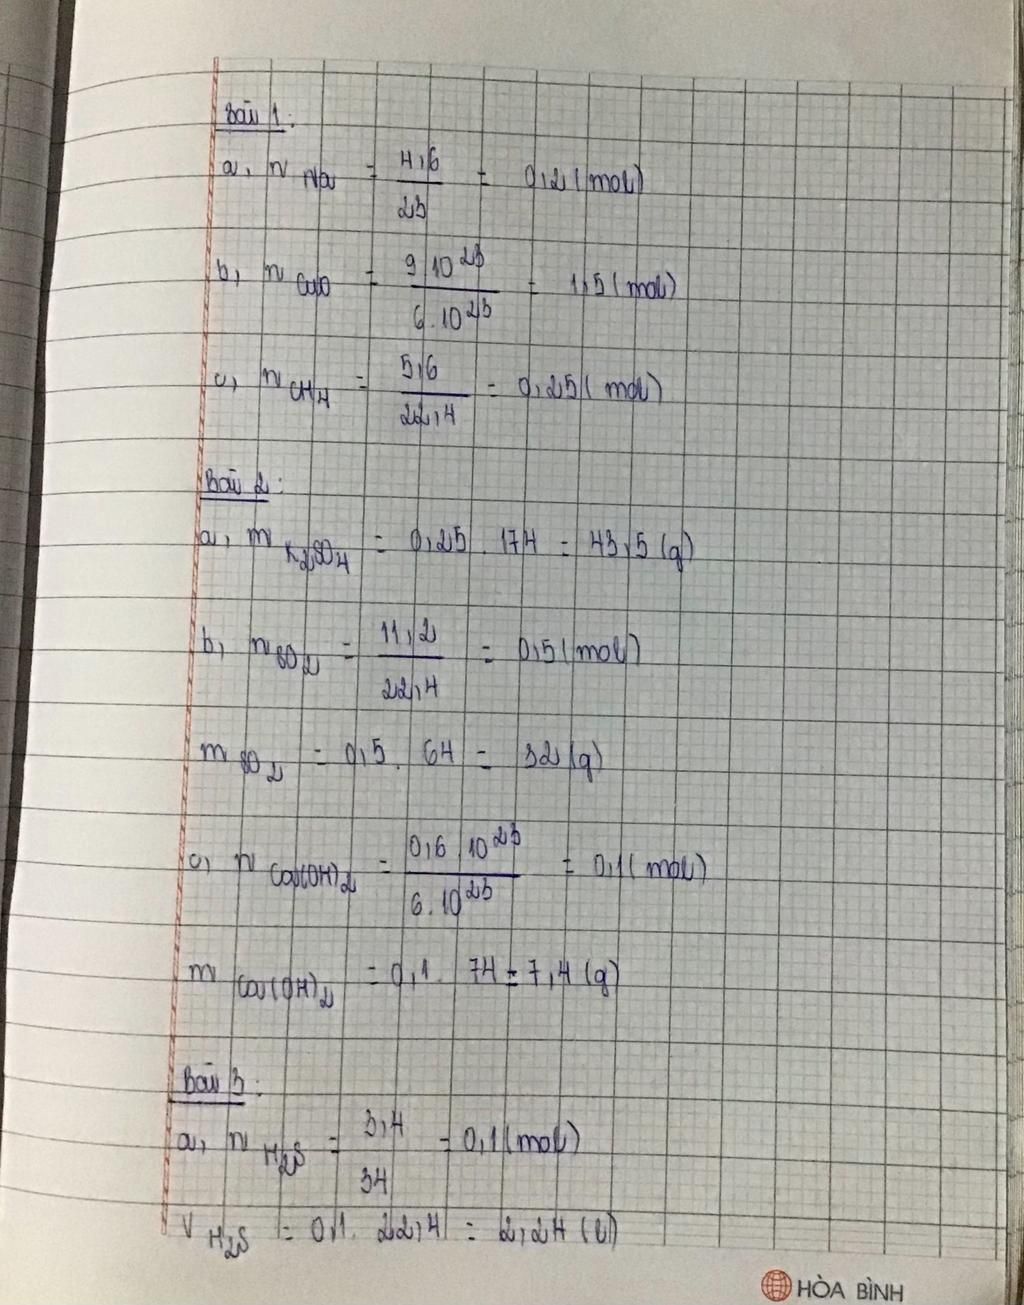 Bài 1:
a, n Na = 4,6 / 23 = 0,2 (mol)
b, n CaO = 9.10^23 / 6.10^23 = 1,5 (mol)
c, n CH4 = 5,6 / 22,4 = 0,25 (mol)
Bài 2:
a, m K2SO4 = 0,25 . 174 = 43,5 (g)
b, n SO2 = 11,2 / 22,4 = 0,5 (mol)
m SO2 = 0,5 . 64 = 32 (g)
c, n Ca(OH)2 = 0,6.10^23 / 6.10^23 = 0,1 (mol)
m Ca(OH)2 = 0,1 . 74 = 7,4 (g)
Bài 3:
a, n H2S = 3,4 / 34 = 0,1 (mol)
V H2S = 0,1 . 22,4 = 2,24 (l)
HÒA BÌNH